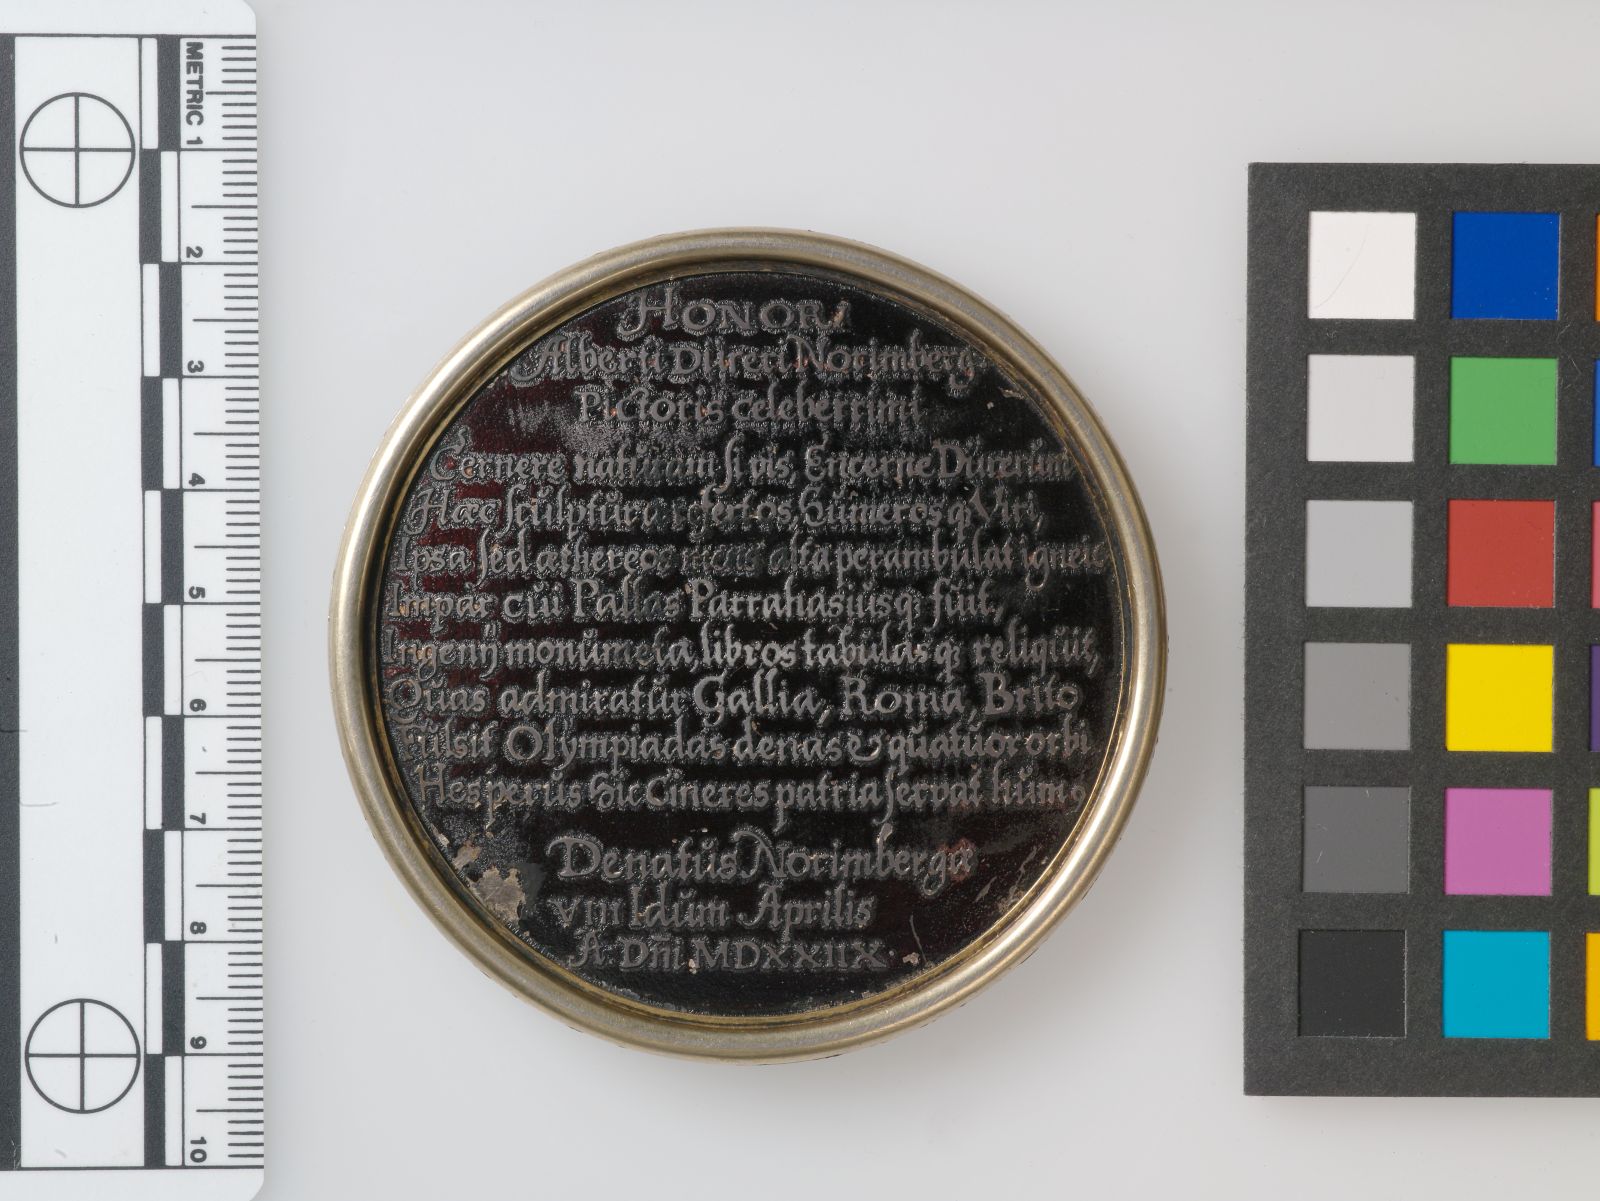 METRIC 1
2
3
4
5
6
7
8
9
10
HONORI
Alberti Düreri Norimberg
Pictoris celeberrimi
Cernere natŭram si vis, Encerne Dŭrerŭm
Hæc scŭlptŭra refert os, hŭmerosq; Viri,
Ipsa sed æthereos alta perambŭlat igneis
Impar cŭi Pallas Parrahasiŭsq; fŭit,
Ingenij monŭmēta, libros tabŭlasq; reliqŭit,
Qŭas admiratŭr Gallia, Roma, Brito
Fŭlsit Olympiadas denas & qŭatŭor orbi
Hesperŭs hic Cineres patria servat hŭmꝰ
Denatŭs Norimbergæ
VIII Idŭm Aprilis
A Dn̄i MDXXIIX·